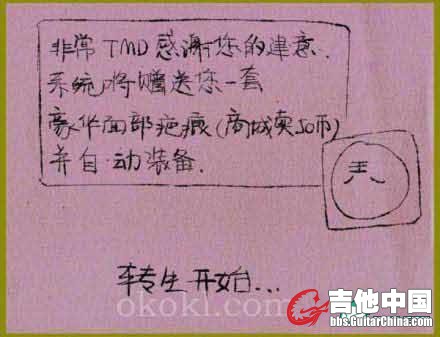 非常TMD感谢您的建意.
系统将赠送您一套
豪华面部疤痕(商城卖50币)
并自动装备.
王八
转生开始...
okokl.com
吉他中国
bbs.GuitarChina.com